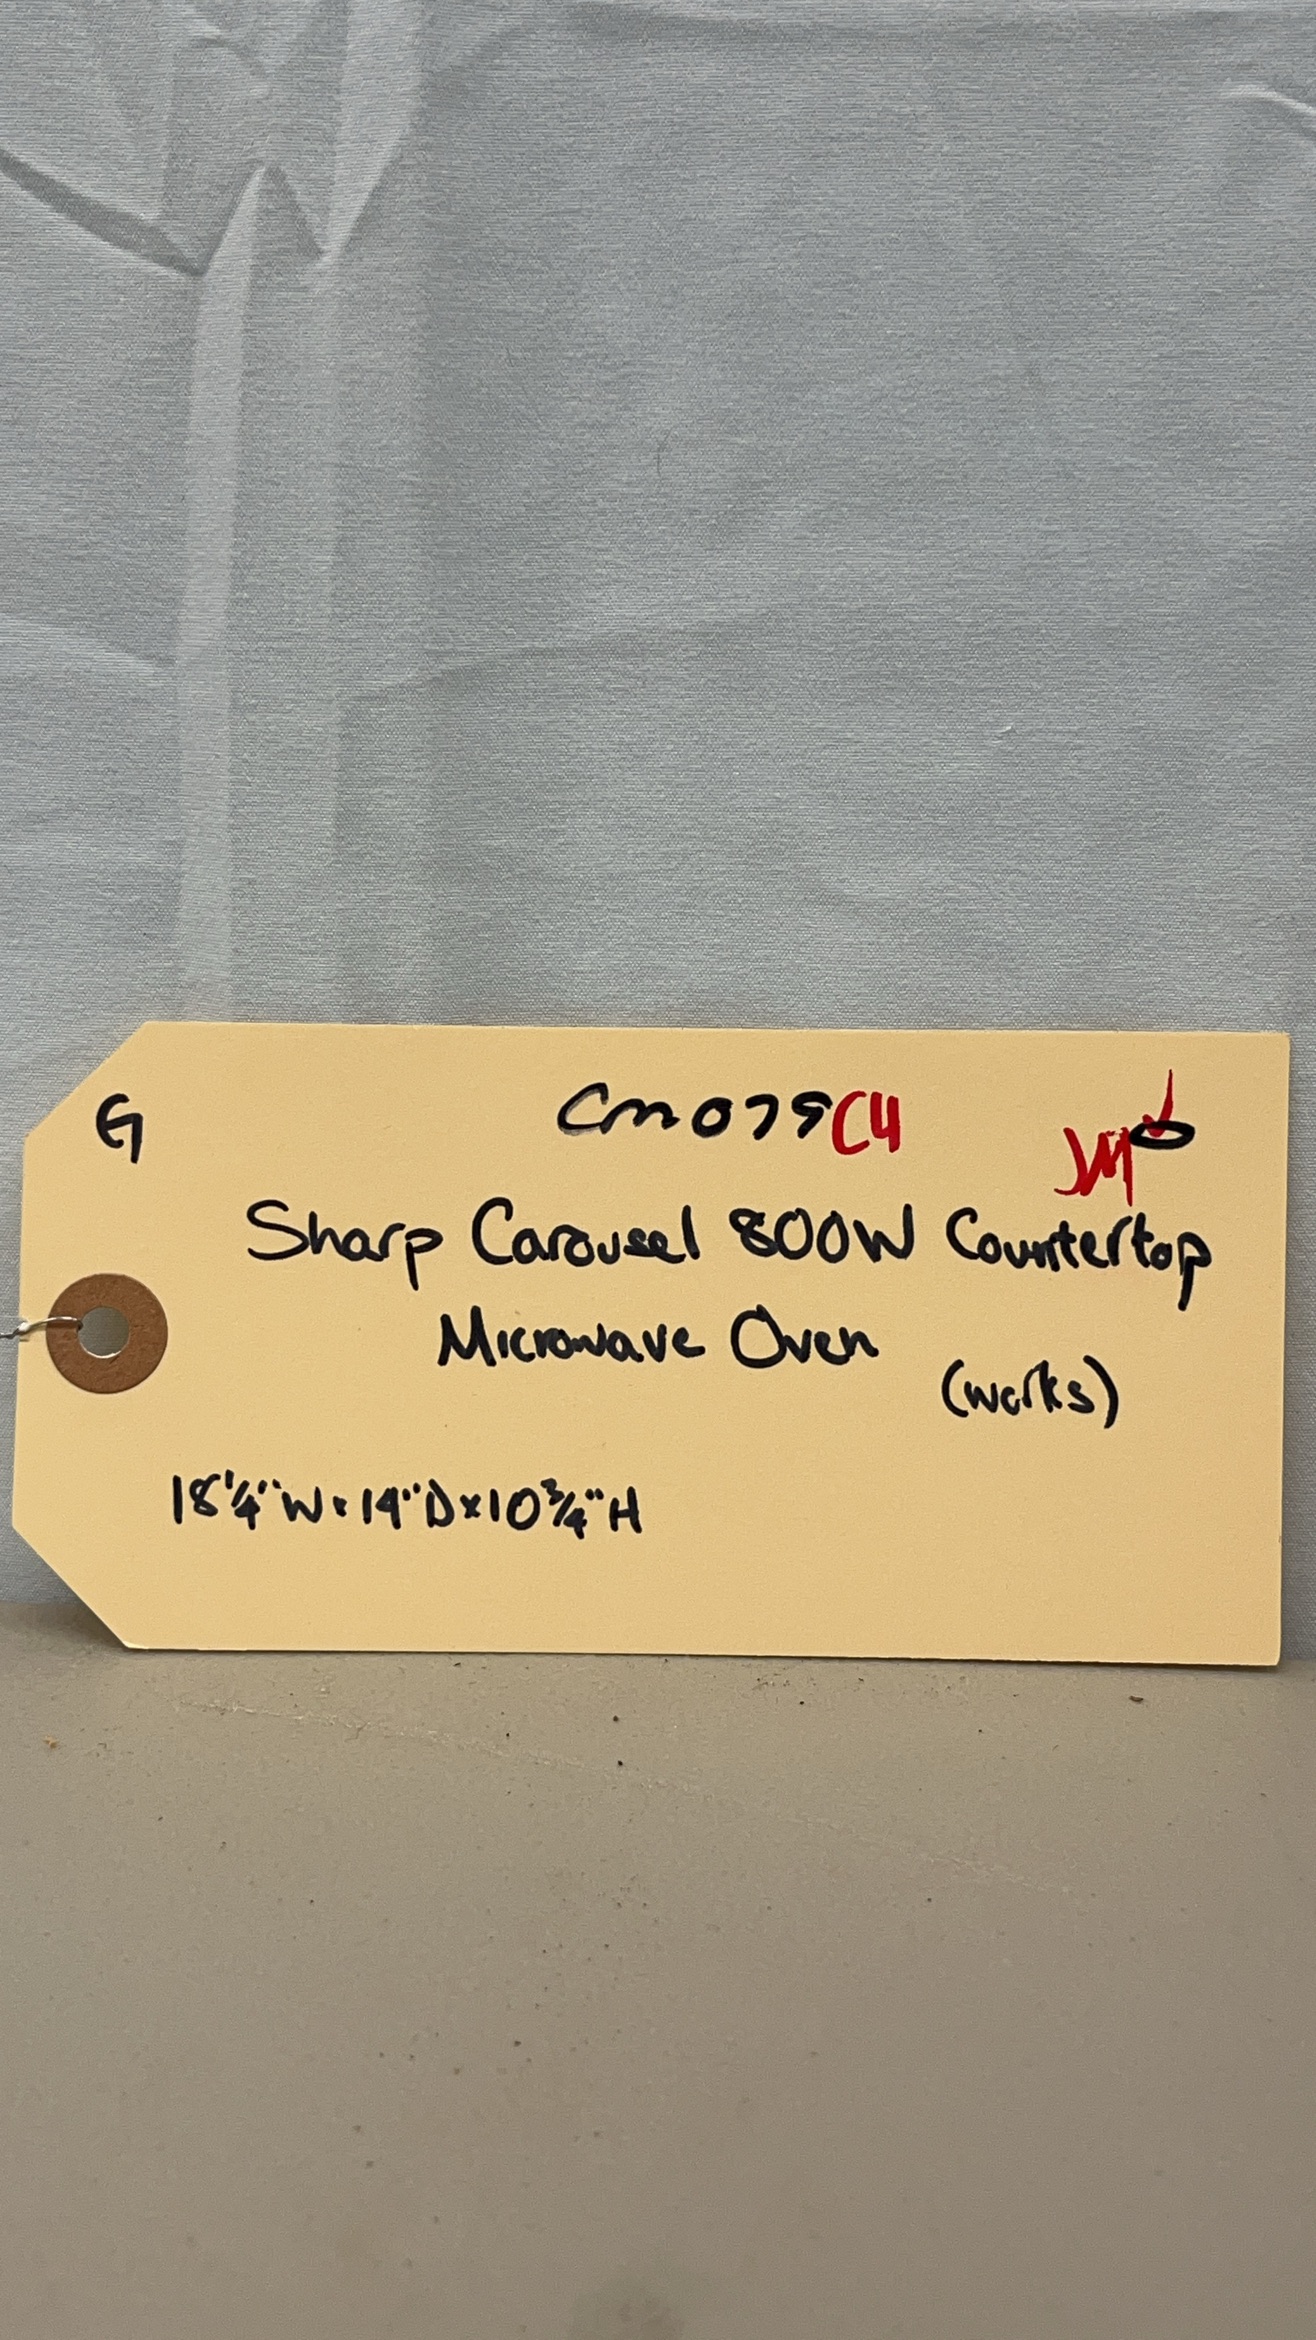 G Cm079C4 JM
Sharp Carousel 800W Countertop
Microwave Oven
(works)
18 1/4"W x 14"D x 10 3/4"H